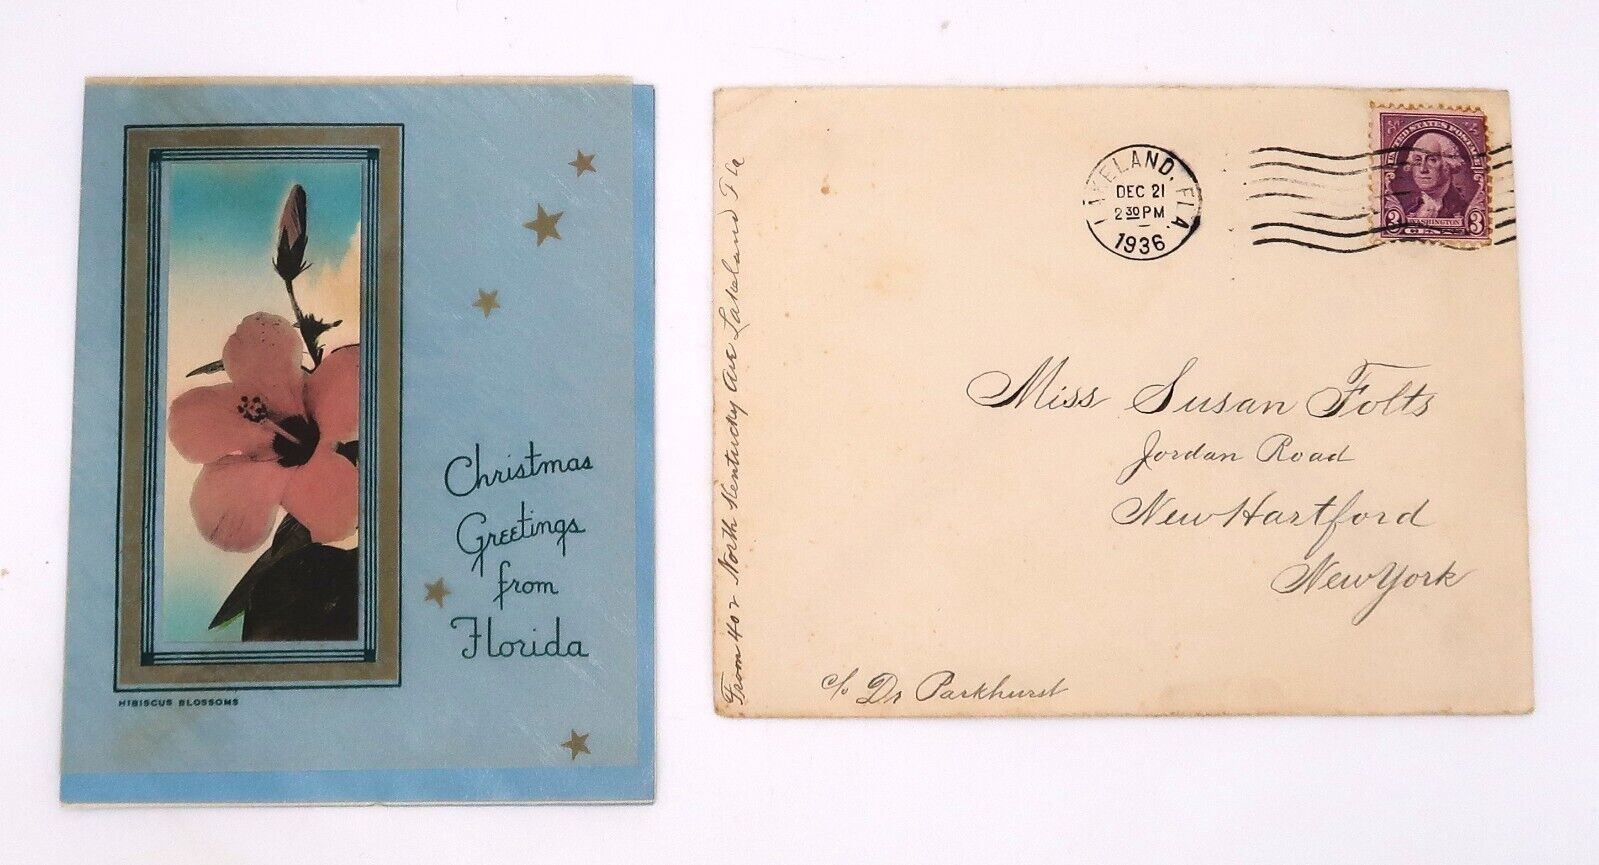 Christmas
Greetings
from
Florida
HIBISCUS BLOSSOMS
From 402 North Kentucky Ave Lakeland Fla
LAKELAND, FLA.
DEC 21
2 30 PM
1936
UNITED STATES POSTAGE
WASHINGTON
3 CENTS 3
Miss Susan Folts
Jordan Road
New Hartford
New York
c/o Dr Parkhurst